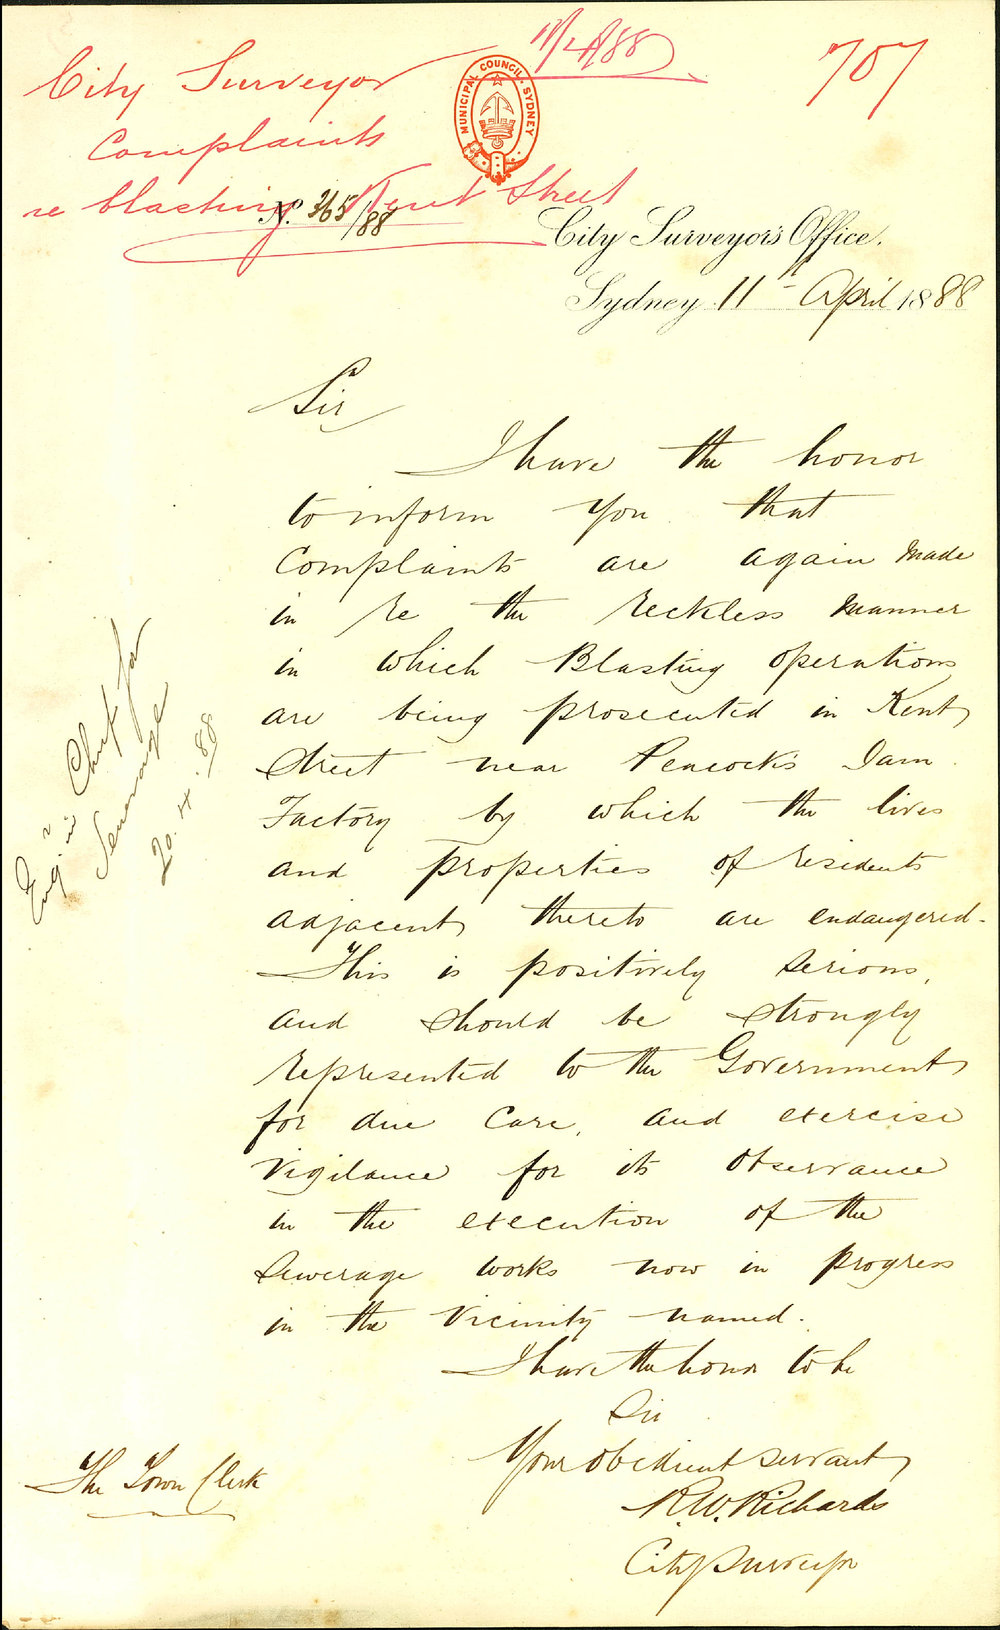 11/4/88
707
City Surveyor
Complaints
re blasting Kent Street
MUNICIPAL COUNCIL SYDNEY
No. 365/88
City Surveyor's Office.
Sydney 11th April 1888
Sir
I have the honor
to inform you that
Complaints are again made
in re the reckless manner
in which Blasting operations
are being prosecuted in Kent
Street near Peacock's Jam
Factory by which the lives
and properties of residents
adjacent thereto are endangered.
This is positively serious,
and should be strongly
represented to the Government
for due care, and exercise
vigilance for its observance
in the execution of the
Sewerage works now in progress
in the vicinity named.
I have the honor to be
Sir
Your obedient servant
R.W. Richards
City Surveyor
The Town Clerk
Engr in Chief for
Sewerage
20.4.88